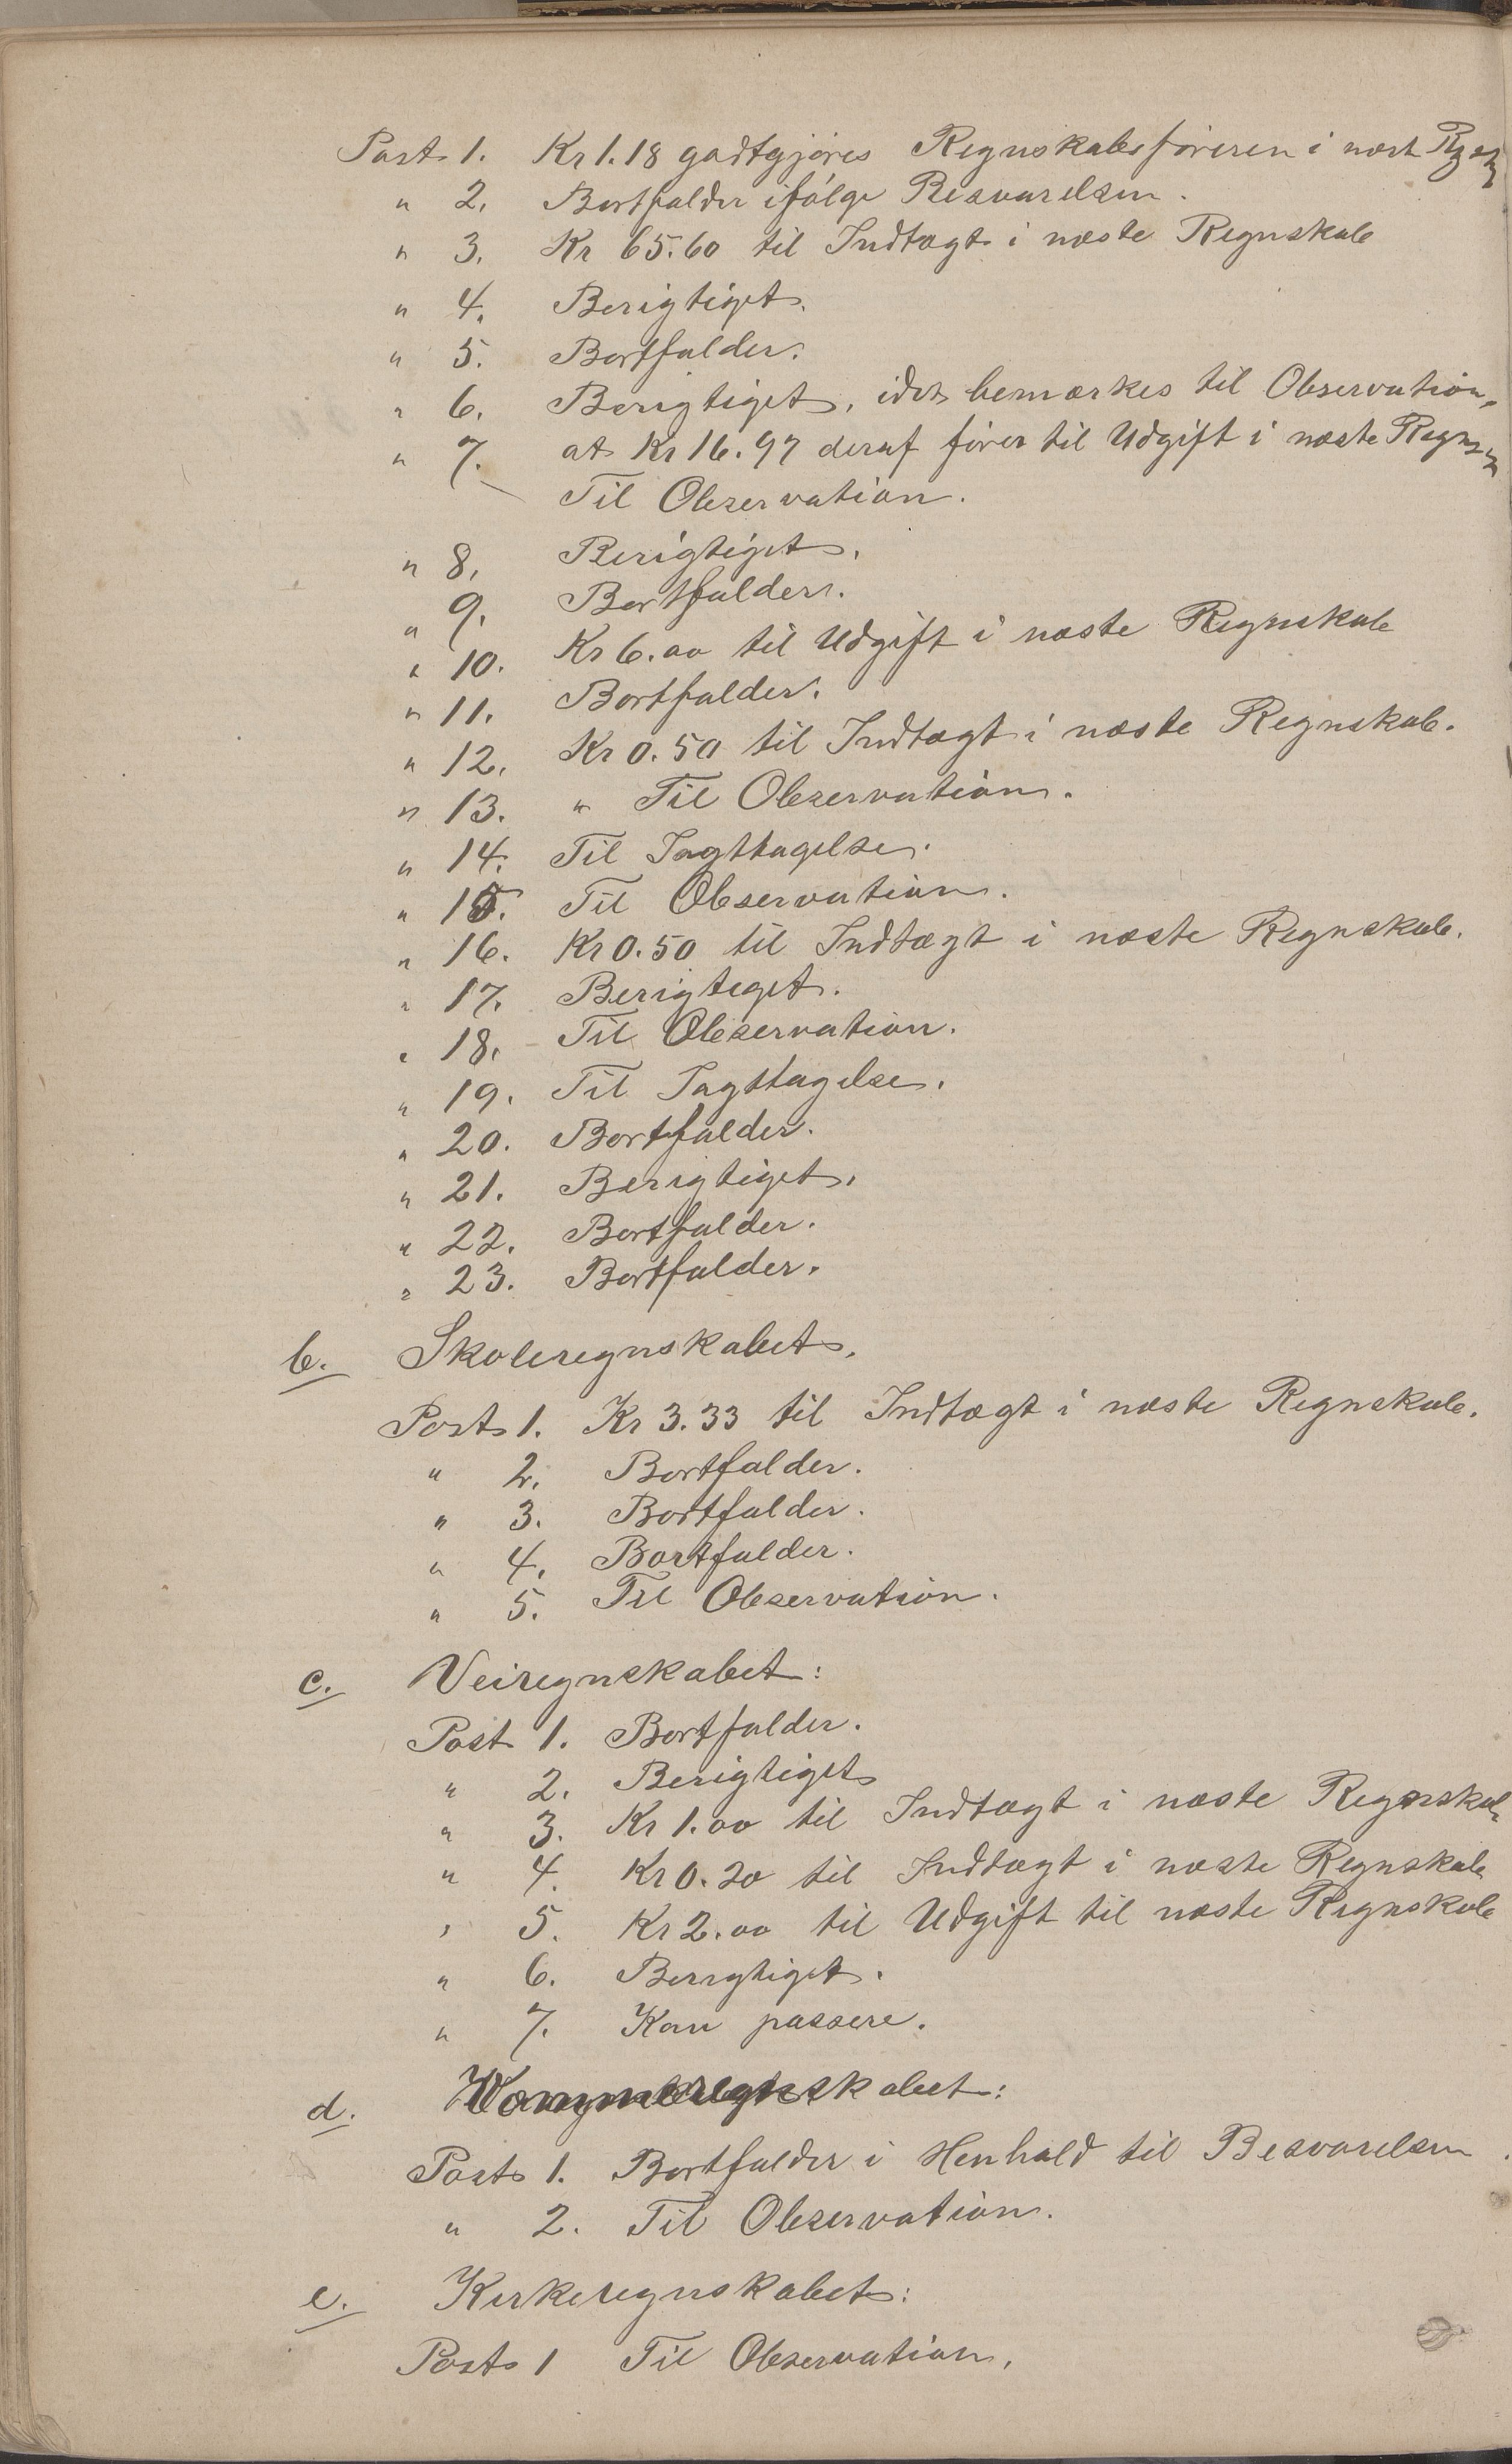 Post 1. Kr 1.18 godtgjøres Regnskabsføreren i næst Rgsk
" 2. Bortfalder ifølge Besvarelsen.
" 3. Kr 65.60 til Indtægt i næste Regnskab
" 4. Berigtiget.
" 5. Bortfalder.
" 6. Berigtiget, idet bemærkes til Observation,
" 7. at Kr 16.97 deraf fører til Udgift i næste Regnsk
Til Observation.
" 8. Berigtiget.
" 9. Bortfalder.
" 10. Kr 6.00 til Udgift i næste Regnskab
" 11. Bortfalder.
" 12. Kr 0.50 til Indtægt i næste Regnskab.
" 13. " Til Observation.
" 14. Til Iagttagelse.
" 15. Til Observation.
" 16. Kr 0.50 til Indtægt i næste Regnskab.
" 17. Berigtiget.
" 18. Til Observation.
" 19. Til Iagttagelse.
" 20. Bortfalder.
" 21. Berigtiget.
" 22. Bortfalder.
" 23. Bortfalder.
b. Skoleregnskabet.
Post 1. Kr 3.33 til Indtægt i næste Regnskab.
" 2. Bortfalder.
" 3. Bortfalder.
" 4. Bortfalder.
" 5. Til Observation.
c. Veiregnskabet:
Post 1. Bortfalder.
" 2. Berigtiget
" 3. Kr 1.00 til Indtægt i næste Regnskab
" 4. Kr 0.20 til Indtægt i næste Regnskab
" 5. Kr 2.00 til Udgift til næste Regnskab
" 6. Berigtiget.
" 7. Kan passere.
d. skabet:
Post 1. Bortfalder i Henhold til Besvarelsen.
" 2. Til Observation.
e. Kirkeregnskabet:
Post 1 Til Observation.